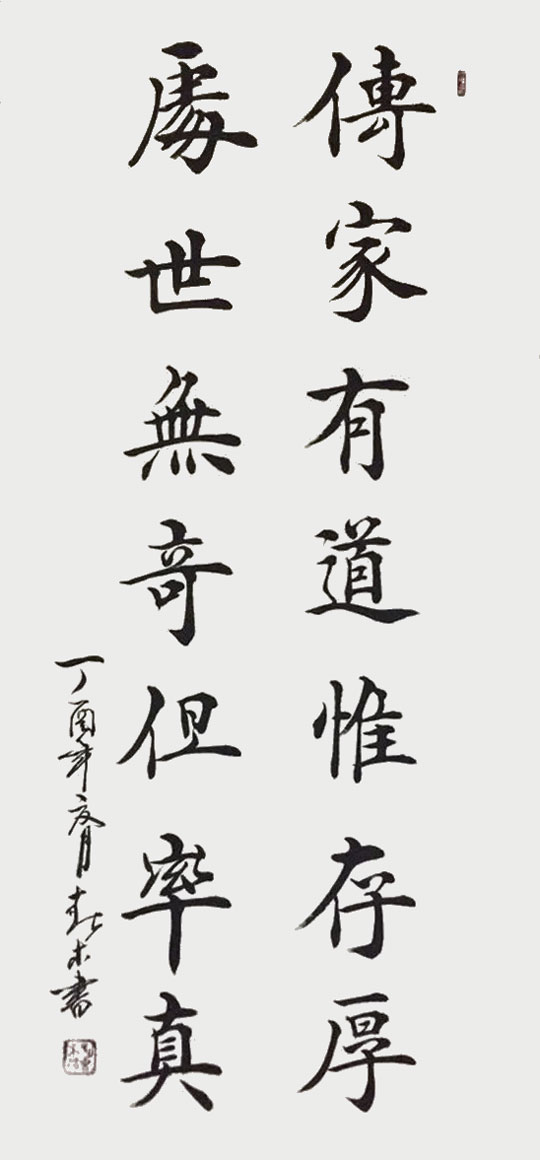 傳家有道惟存厚
處世無奇但率真
丁酉年 春木書